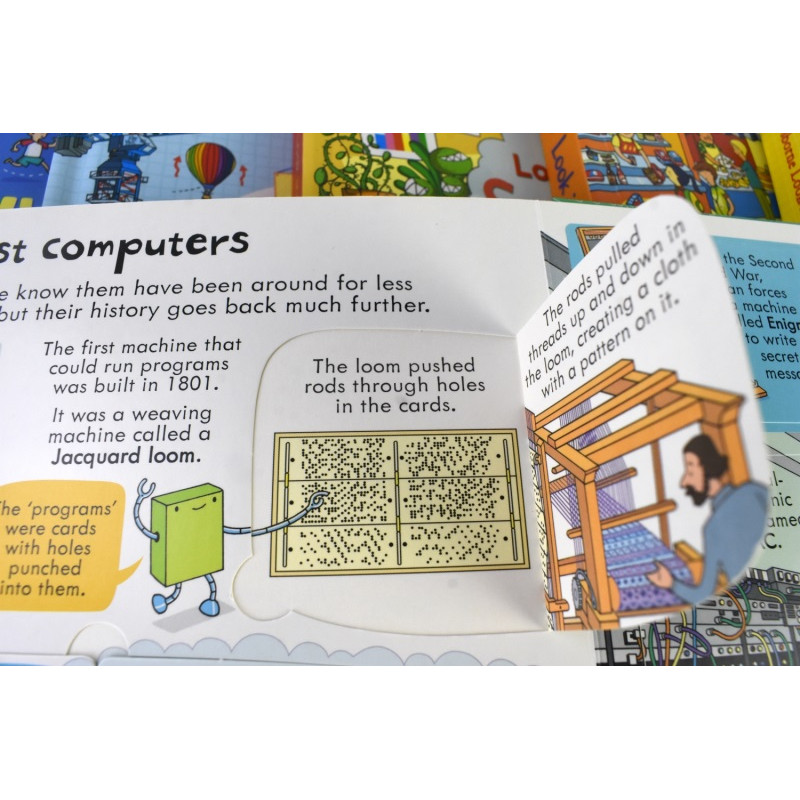 st computers
e know them have been around for less
but their history goes back much further.
The first machine that
could run programs
was built in 1801.
It was a weaving
machine called a
Jacquard loom.
The 'programs'
were cards
with holes
punched
into them.
The loom pushed
rods through holes
in the cards.
The rods pulled
threads up and down in
the loom, creating a cloth
with a pattern on it.
the Second
War,
an forces
machine
led Enig
to write
secret
mess
Lo
Look